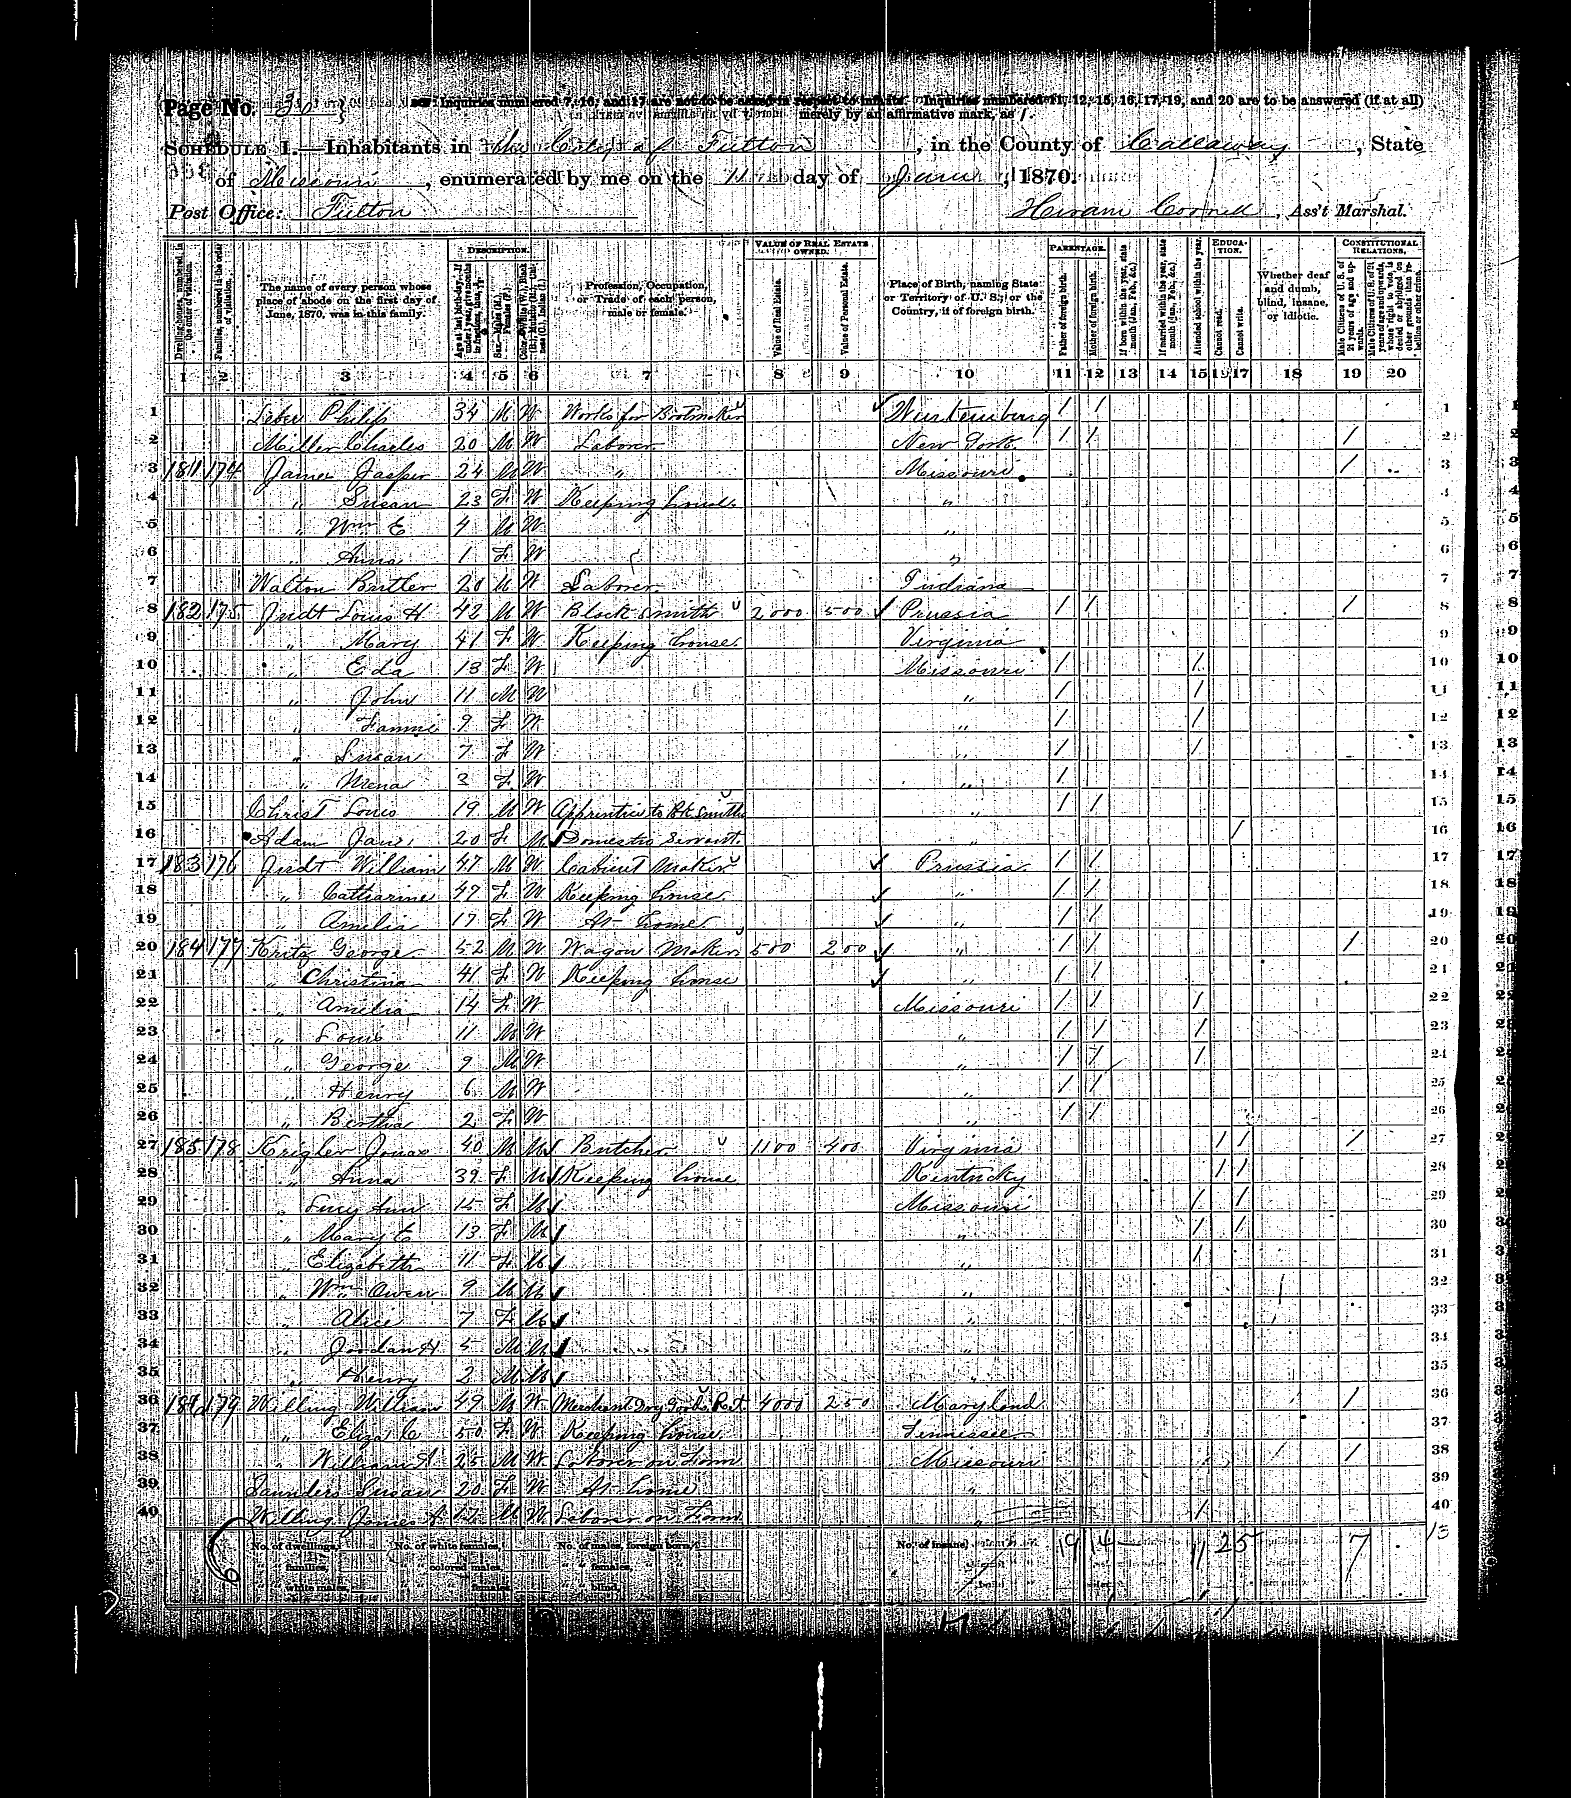 Page No. 30
Inquiries numbered 7, 16, and 17 are not to be asked in respect to infants. Inquiries numbered 11, 12, 15, 16, 17, 19, and 20 are to be answered (if at all)
merely by an affirmative mark, as /.
SCHEDULE 1.—Inhabitants in the City of Fulton, in the County of Callaway, State
of Missouri, enumerated by me on the 11 day of June, 1870.
Post Office: Fulton
Hiram Cornell, Ass't Marshal.
DESCRIPTION. VALUE OF REAL ESTATE OWNED. PARENTAGE. EDUCATION. CONSTITUTIONAL RELATIONS.
Dwelling-houses, numbered in the order of visitation.
Families, numbered in the order of visitation.
The name of every person whose place of abode on the first day of June, 1870, was in this family.
Profession, Occupation, or Trade of each person, male or female.
Value of Real Estate.
Value of Personal Estate.
Place of Birth, naming State or Territory of U. S.; or the Country, if of foreign birth.
Father of foreign birth.
Mother of foreign birth.
Attended school within the year.
Cannot read.
Cannot write.
Whether deaf and dumb, blind, insane, or idiotic.
1 2 3 4 5 6 7 8 9 10 11 12 13 14 15 16 17 18 19 20
1 Philip 34 M W Works for Bootmaker Wurtemburg / / 1
2 Miller Charles 20 M W Laborer New York / / / 2
3 181 174 James Jasper 24 M W " Missouri / 3
4 " Susan 23 F W Keeping house " 4
5 " Wm E 4 M W " 5
6 " Anna 1 F W " 6
7 Walton Butler 20 M W Laborer Indiana 7
8 182 175 Jndt Louis H 42 M W Black Smith 2000 500 Prussia / / / 8
9 " Mary 41 F W Keeping house Virginia 9
10 " Eda 13 F W Missouri / / 10
11 " John 11 M W " / / 11
12 " Fannie 9 F W " / / 12
13 " Susan 7 F W " / / 13
14 " Mena 3 F W " / 14
15 Christ Louis 19 M W Apprentice to Bk Smith " / / 15
16 Adam Jane 20 F M Domestic Servant " / 16
17 183 176 Jndt William 47 M W Cabinet Maker Prussia / / 17
18 " Catharine 47 F W Keeping house " / / 18
19 " Amelia 17 F W At home " / / 19
20 184 177 Kritz George 52 M W Wagon Maker 500 200 " / / / 20
21 " Christina 41 F W Keeping house " / / 21
22 " Amelia 14 F W Missouri / / / 22
23 " Louis 11 M W " / / / 23
24 " George 9 M W " / / / 24
25 " Henry 6 M W " / / 25
26 " Bertha 2 F W " / / 26
27 185 178 Krigler Jonas 40 M M Butcher 1100 400 Virginia / / / 27
28 " Anna 39 F M Keeping house Kentucky / / 28
29 " Lucy Ann 15 F M Missouri / / 29
30 " Mary E 13 F M " / / 30
31 " Elizabeth 11 F M " / 31
32 " Wm Owen 9 M M " 32
33 " Alice 7 F M " 33
34 " Jordan H 5 M M " 34
35 " Henry 2 M M " 35
36 186 179 Willing William 49 M W Merchant Dry Goods Ret. 4000 250 Maryland / 36
37 " Eliza C 50 F W Keeping house Tennessee 37
38 " William 25 M W Labors on Farm Missouri / 38
39 Saunders Susan 20 F W At home " 39
40 Willing James 17 M W Labors on Farm " / 40
No. of dwellings, No. of white females, No. of males, foreign born, No. of insane, 19 14 11 25 7 13
" families, " colored males, " females,
" white males, " females, " blind,